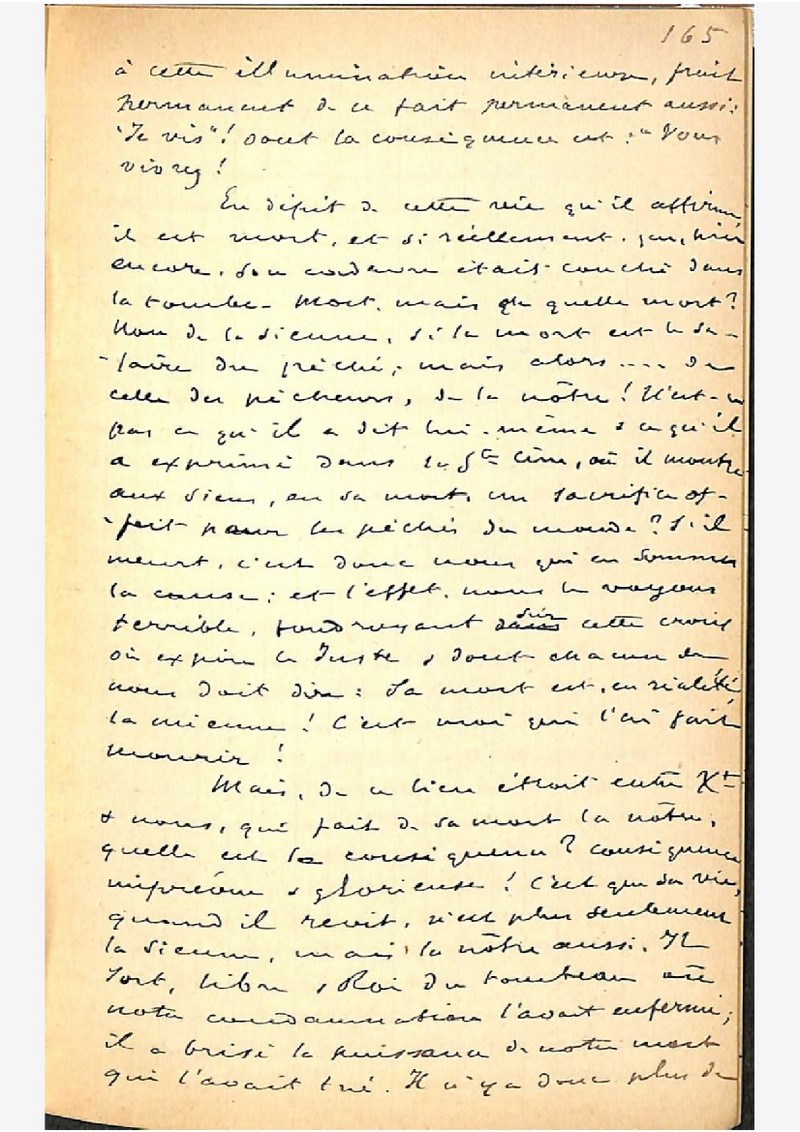 165
à cette illumination intérieure, fruit
permanent de ce fait permanent aussi:
"Je vis"! dont la conséquence est: "Vous
vivrez!
En dépit de cette vie qu'il affirme,
il est mort, et si réellement, que, hier
encore, son cadavre était couché dans
la tombe - Mort, mais de quelle mort?
Non de la sienne, si la mort est le sa-
-laire du péché; mais alors .... de
celle des pécheurs, de la nôtre! N'est-ce
pas ce qu'il a dit lui-même & ce qu'il
a exprimé dans la Ste Cène, où il montre
aux siens, en sa mort, un sacrifice of-
-fert pour les péchés du monde? S'il
meurt, c'est donc nous qui en sommes
la cause; et l'effet, nous le voyons
terrible, foudroyant dans sur cette croix
où expire le Juste & dont chacun de
nous doit dire: Sa mort est, en réalité
la mienne! C'est moi qui l'ai fait
mourir!
Mais, de ce lien étroit entre Xt
& nous, qui fait de sa mort la nôtre,
quelle est la conséquence? conséquence
imprévue & glorieuse! C'est que sa vie,
quand il revit, n'est plus seulement
la sienne, mais la nôtre aussi. Il
sort, libre & Roi du tombeau où
notre condamnation l'avait enfermé;
il a brisé la puissance de notre mort
qui l'avait tué. Il n'y a donc plus de